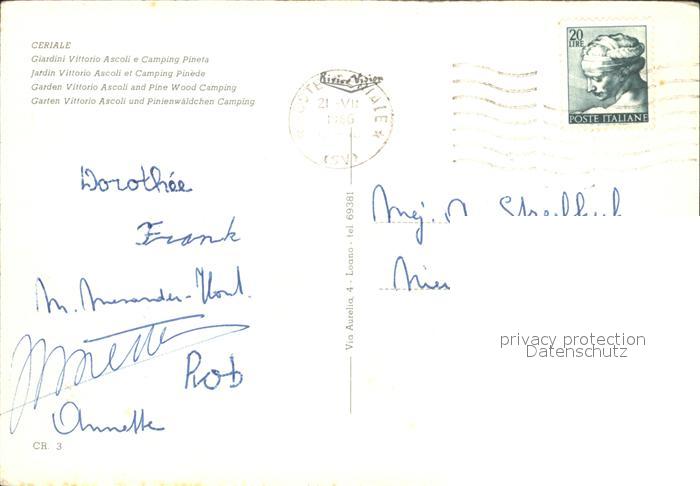 CERIALE
Giardini Vittorio Ascoli e Camping Pineta
Jardin Vittorio Ascoli et Camping Pinède
Garden Vittorio Ascoli and Pine Wood Camping
Garten Vittorio Ascoli und Pinienwäldchen Camping
21 -VII
1966
(SV)
20
LIRE
POSTE ITALIANE
Dorothée
Frank
M.
Rob
Annette
CR. 3
Via Aurelia, 4 - Loano - tel. 69381
privacy protection
Datenschutz